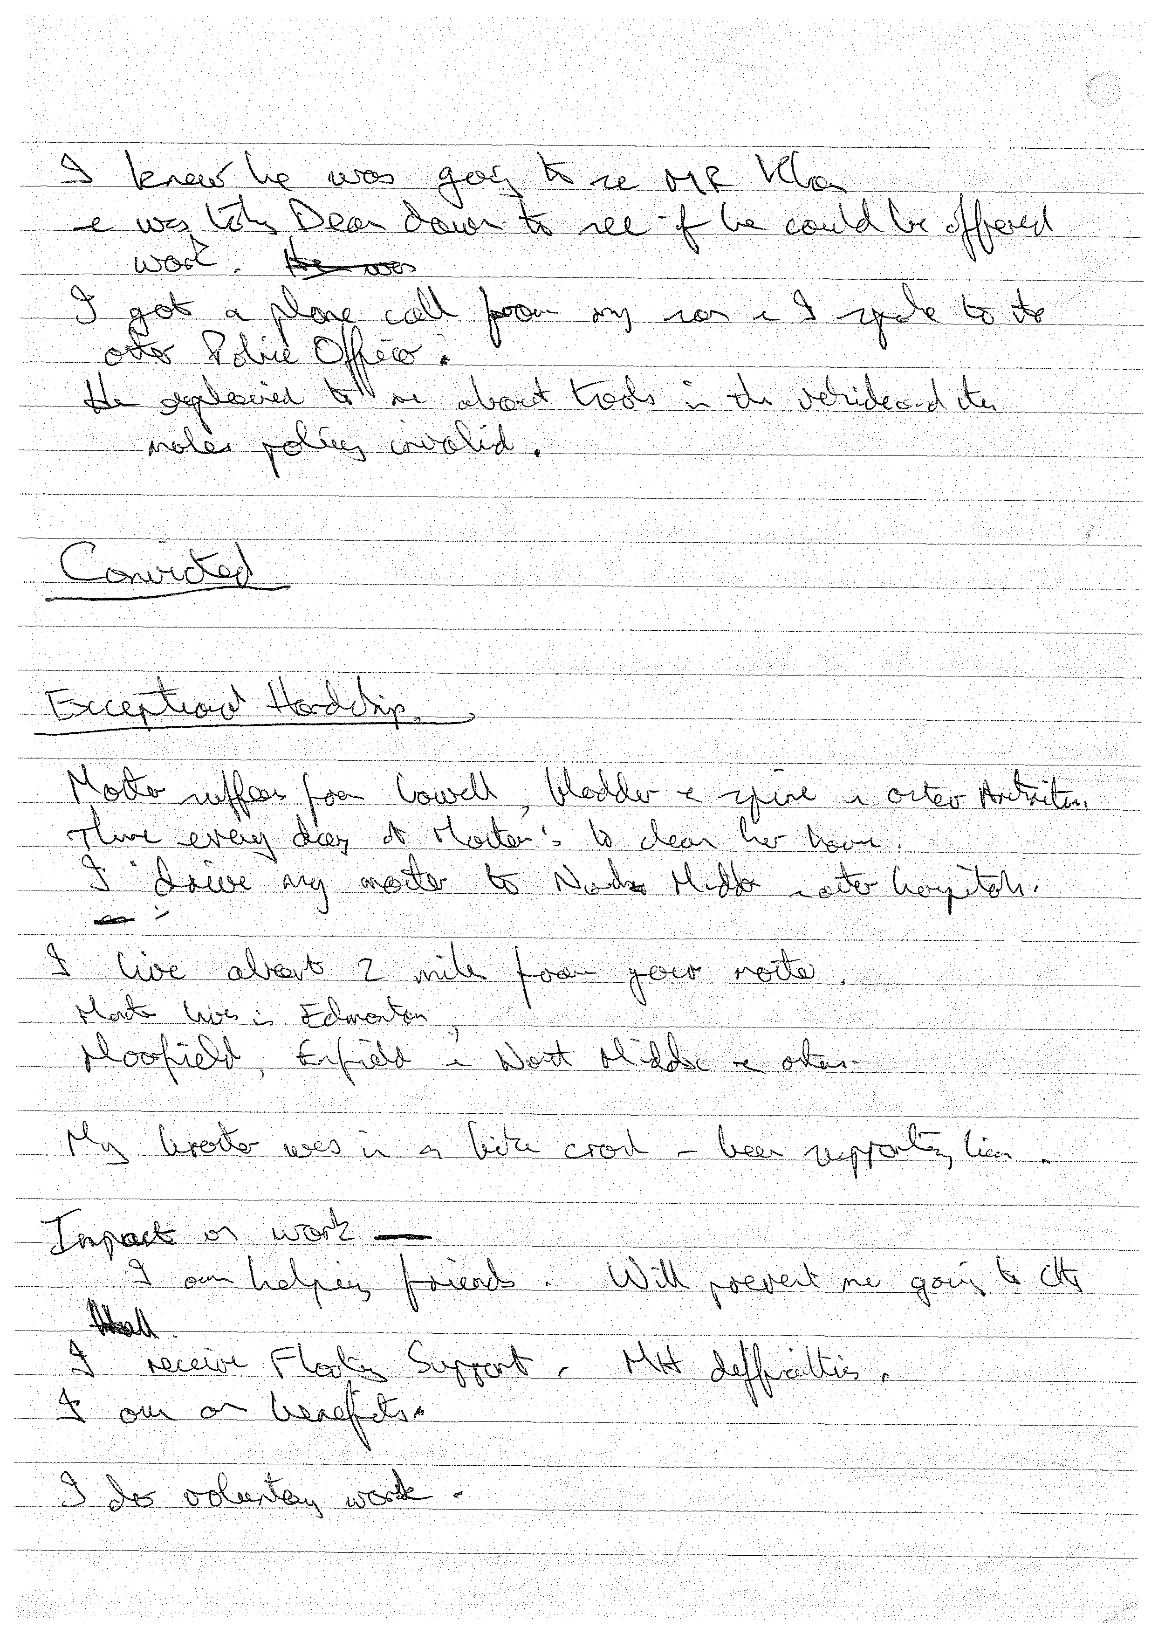 I knew he was going to see MR Khan
& was taking Dean down to see if he could be offered
work. He was
I got a phone call from my son & I spoke to the
other Police Officer.
He explained to me about tools in the vehicle and this
makes policy invalid.
Convicted
Exceptional Hardship.
Mother suffers from bowell, bladder & spine & osteo Arthritis.
I have every day at Mother's to clean her home.
I drive my mother to North Middx & other hospitals.
I live about 2 miles from your mother.
Mother lives in Edmonton,
Moorfield, Enfield & North Middx & others
My brother was in a bike crash - been supporting him.
Impact on work —
I am helping friends. Will prevent me going to
I receive Floating Support. MH difficulties.
I am on benefits.
I do voluntary work.